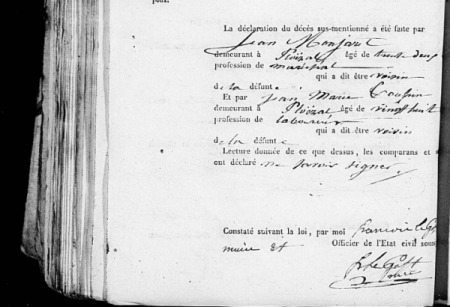 La déclaration du décès sus-mentionné a été faite par
Jean
demeurant à Ploizal âgé de trente deux
profession de maréchal
qui a dit être voisin
de la défunte
Et par Jean Marie
demeurant à Ploizal âgé de vingt huit
profession de laboureur
qui a dit être voisin
de la défunte
Lecture donnée de ce que dessus, les comparans et
ont déclaré ne savoir signer
Constaté suivant la loi, par moi françois le
maire et Officier de l'Etat civil sous